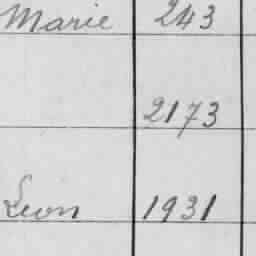 Marie 243
2173
Leon 1931